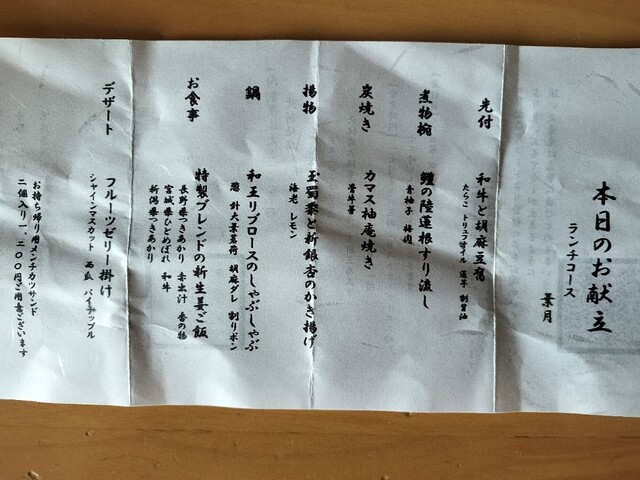 本日のお献立
ランチコース
葉月
先付
和牛と胡麻豆腐
たらこ トリュフオイル 蓮芋 割醤油
煮物椀
鱧の陸蓮根すり流し
青柚子 梅肉
炭焼き
カマス柚庵焼き
揚物
玉蜀黍と新銀杏のかき揚げ
海老 レモン
鍋
和王リブロースのしゃぶしゃぶ
葱 針大葉茗荷 胡麻ダレ 割りポン
お食事
特製ブレンドの新生姜ご飯
長野県こきあかり 赤出汁 香の物
宮城県ひとめぼれ 和牛
新潟県こきあかり
デザート
フルーツゼリー掛け
シャインマスカット 西瓜 パイナップル
お持ち帰り用メンチカツサンド
二個入り一、二〇〇円ご用意ございます